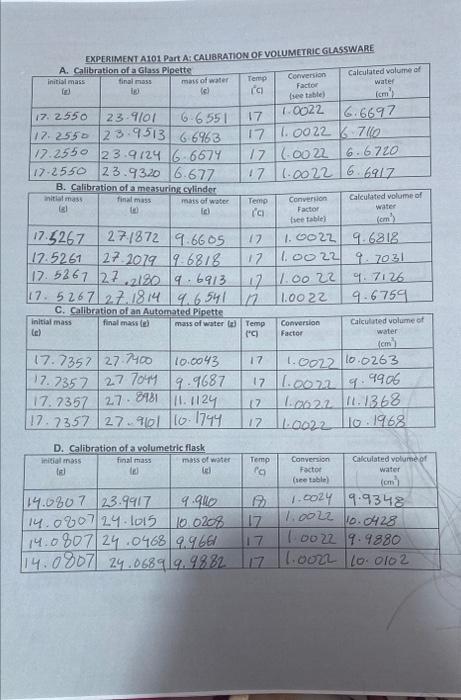 EXPERIMENT A101 Part A: CALIBRATION OF VOLUMETRIC GLASSWARE
A. Calibration of a Glass Pipette
initial mass (g) final mass (g) mass of water (g) Temp (°C) Conversion Factor (see table) Calculated volume of water (cm³)
17.2550 23.9101 6.6551 17 1.0022 6.6697
17.2550 23.9513 6.6963 17 1.0022 6.7110
17.2550 23.9124 6.6574 17 1.0022 6.6720
17.2550 23.9320 6.677 17 1.0022 6.6917
B. Calibration of a measuring cylinder
initial mass (g) final mass (g) mass of water (g) Temp (°C) Conversion Factor (see table) Calculated volume of water (cm³)
17.5267 27.1872 9.6605 17 1.0022 9.6818
17.5261 27.2079 9.6818 17 1.0022 9.7031
17.5267 27.2180 9.6913 17 1.0022 9.7126
17.5267 27.1814 9.6541 17 1.0022 9.6759
C. Calibration of an Automated Pipette
initial mass (g) final mass (g) mass of water (g) Temp (°C) Conversion Factor Calculated volume of water (cm³)
17.7357 27.7400 10.0043 17 1.0022 10.0263
17.7357 27.7044 9.9687 17 1.0022 9.9906
17.7357 27.8481 11.1124 17 1.0022 11.1368
17.7357 27.9101 10.1744 17 1.0022 10.1968
D. Calibration of a volumetric flask
initial mass (g) final mass (g) mass of water (g) Temp (°C) Conversion Factor (see table) Calculated volume of water (cm³)
14.0807 23.9917 9.9110 1.0024 9.9348
14.0807 24.1015 10.0208 17 1.0022 10.0428
14.0807 24.0468 9.9661 17 1.0022 9.9880
14.0807 24.0689 9.9882 17 1.0022 10.0102